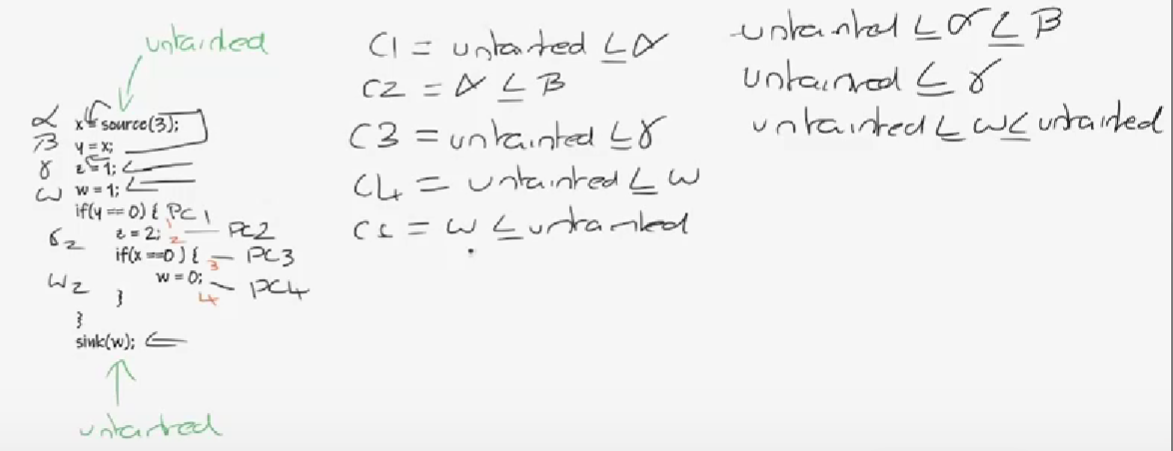 untainted
α x = source(3);
β y = x;
γ z = 1;
ω w = 1;
if(y == 0) { PC1
γ2 z = 2; 1 2 PC2
if(x ==0) { 3 PC3
ω2 w = 0; 4 PC4
}
}
sink(w);
untainted
C1 = untainted ≤ α
C2 = α ≤ β
C3 = untainted ≤ γ
C4 = untainted ≤ ω
C5 = ω ≤ untainted
untainted ≤ α ≤ β
untainted ≤ γ
untainted ≤ ω ≤ untainted